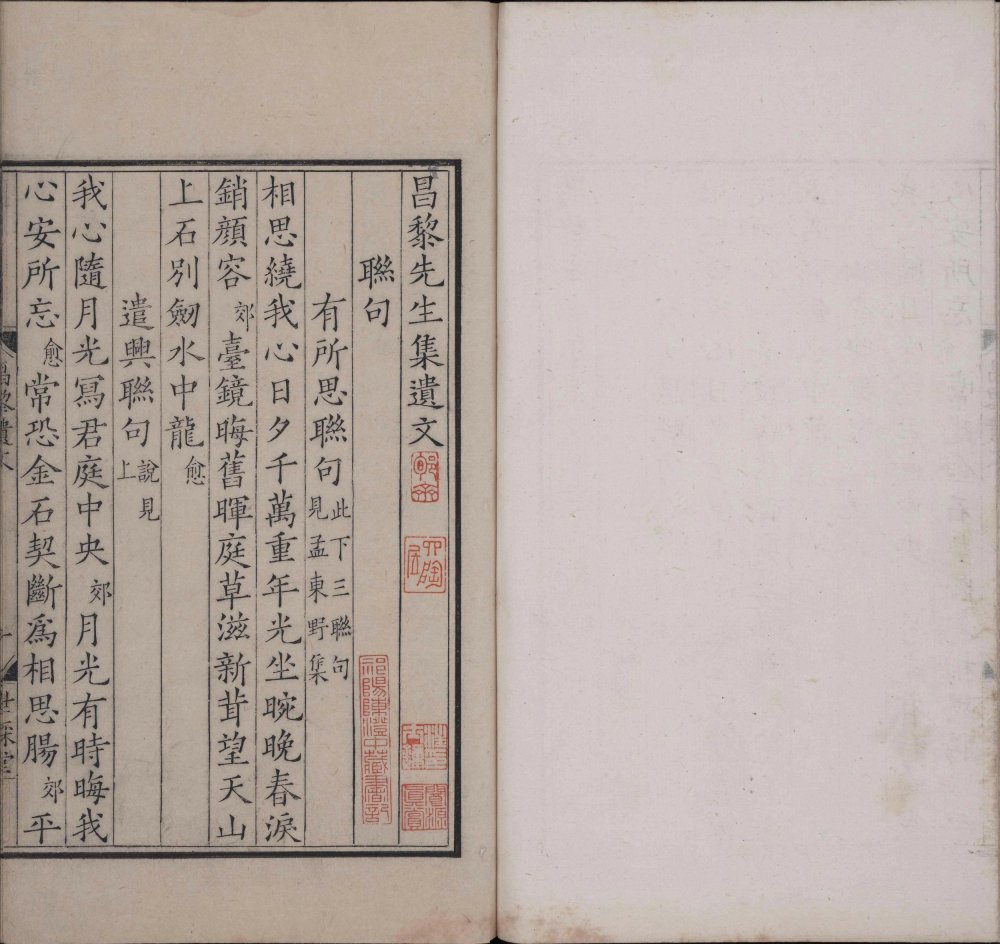 昌黎先生集遺文
聯句
有所思聯句此下三聯句見孟東野集
相思繞我心日夕千萬重年光坐晼晚春淚
銷顏容郊臺鏡晦舊暉庭草滋新茸望天山
上石別劒水中龍愈
遣興聯句說見上
我心隨月光寫君庭中央郊月光有時晦我
心安所忘愈常恐金石契斷爲相思腸郊平
昌黎遺文
世綵堂
祁陽陳澄中藏書記